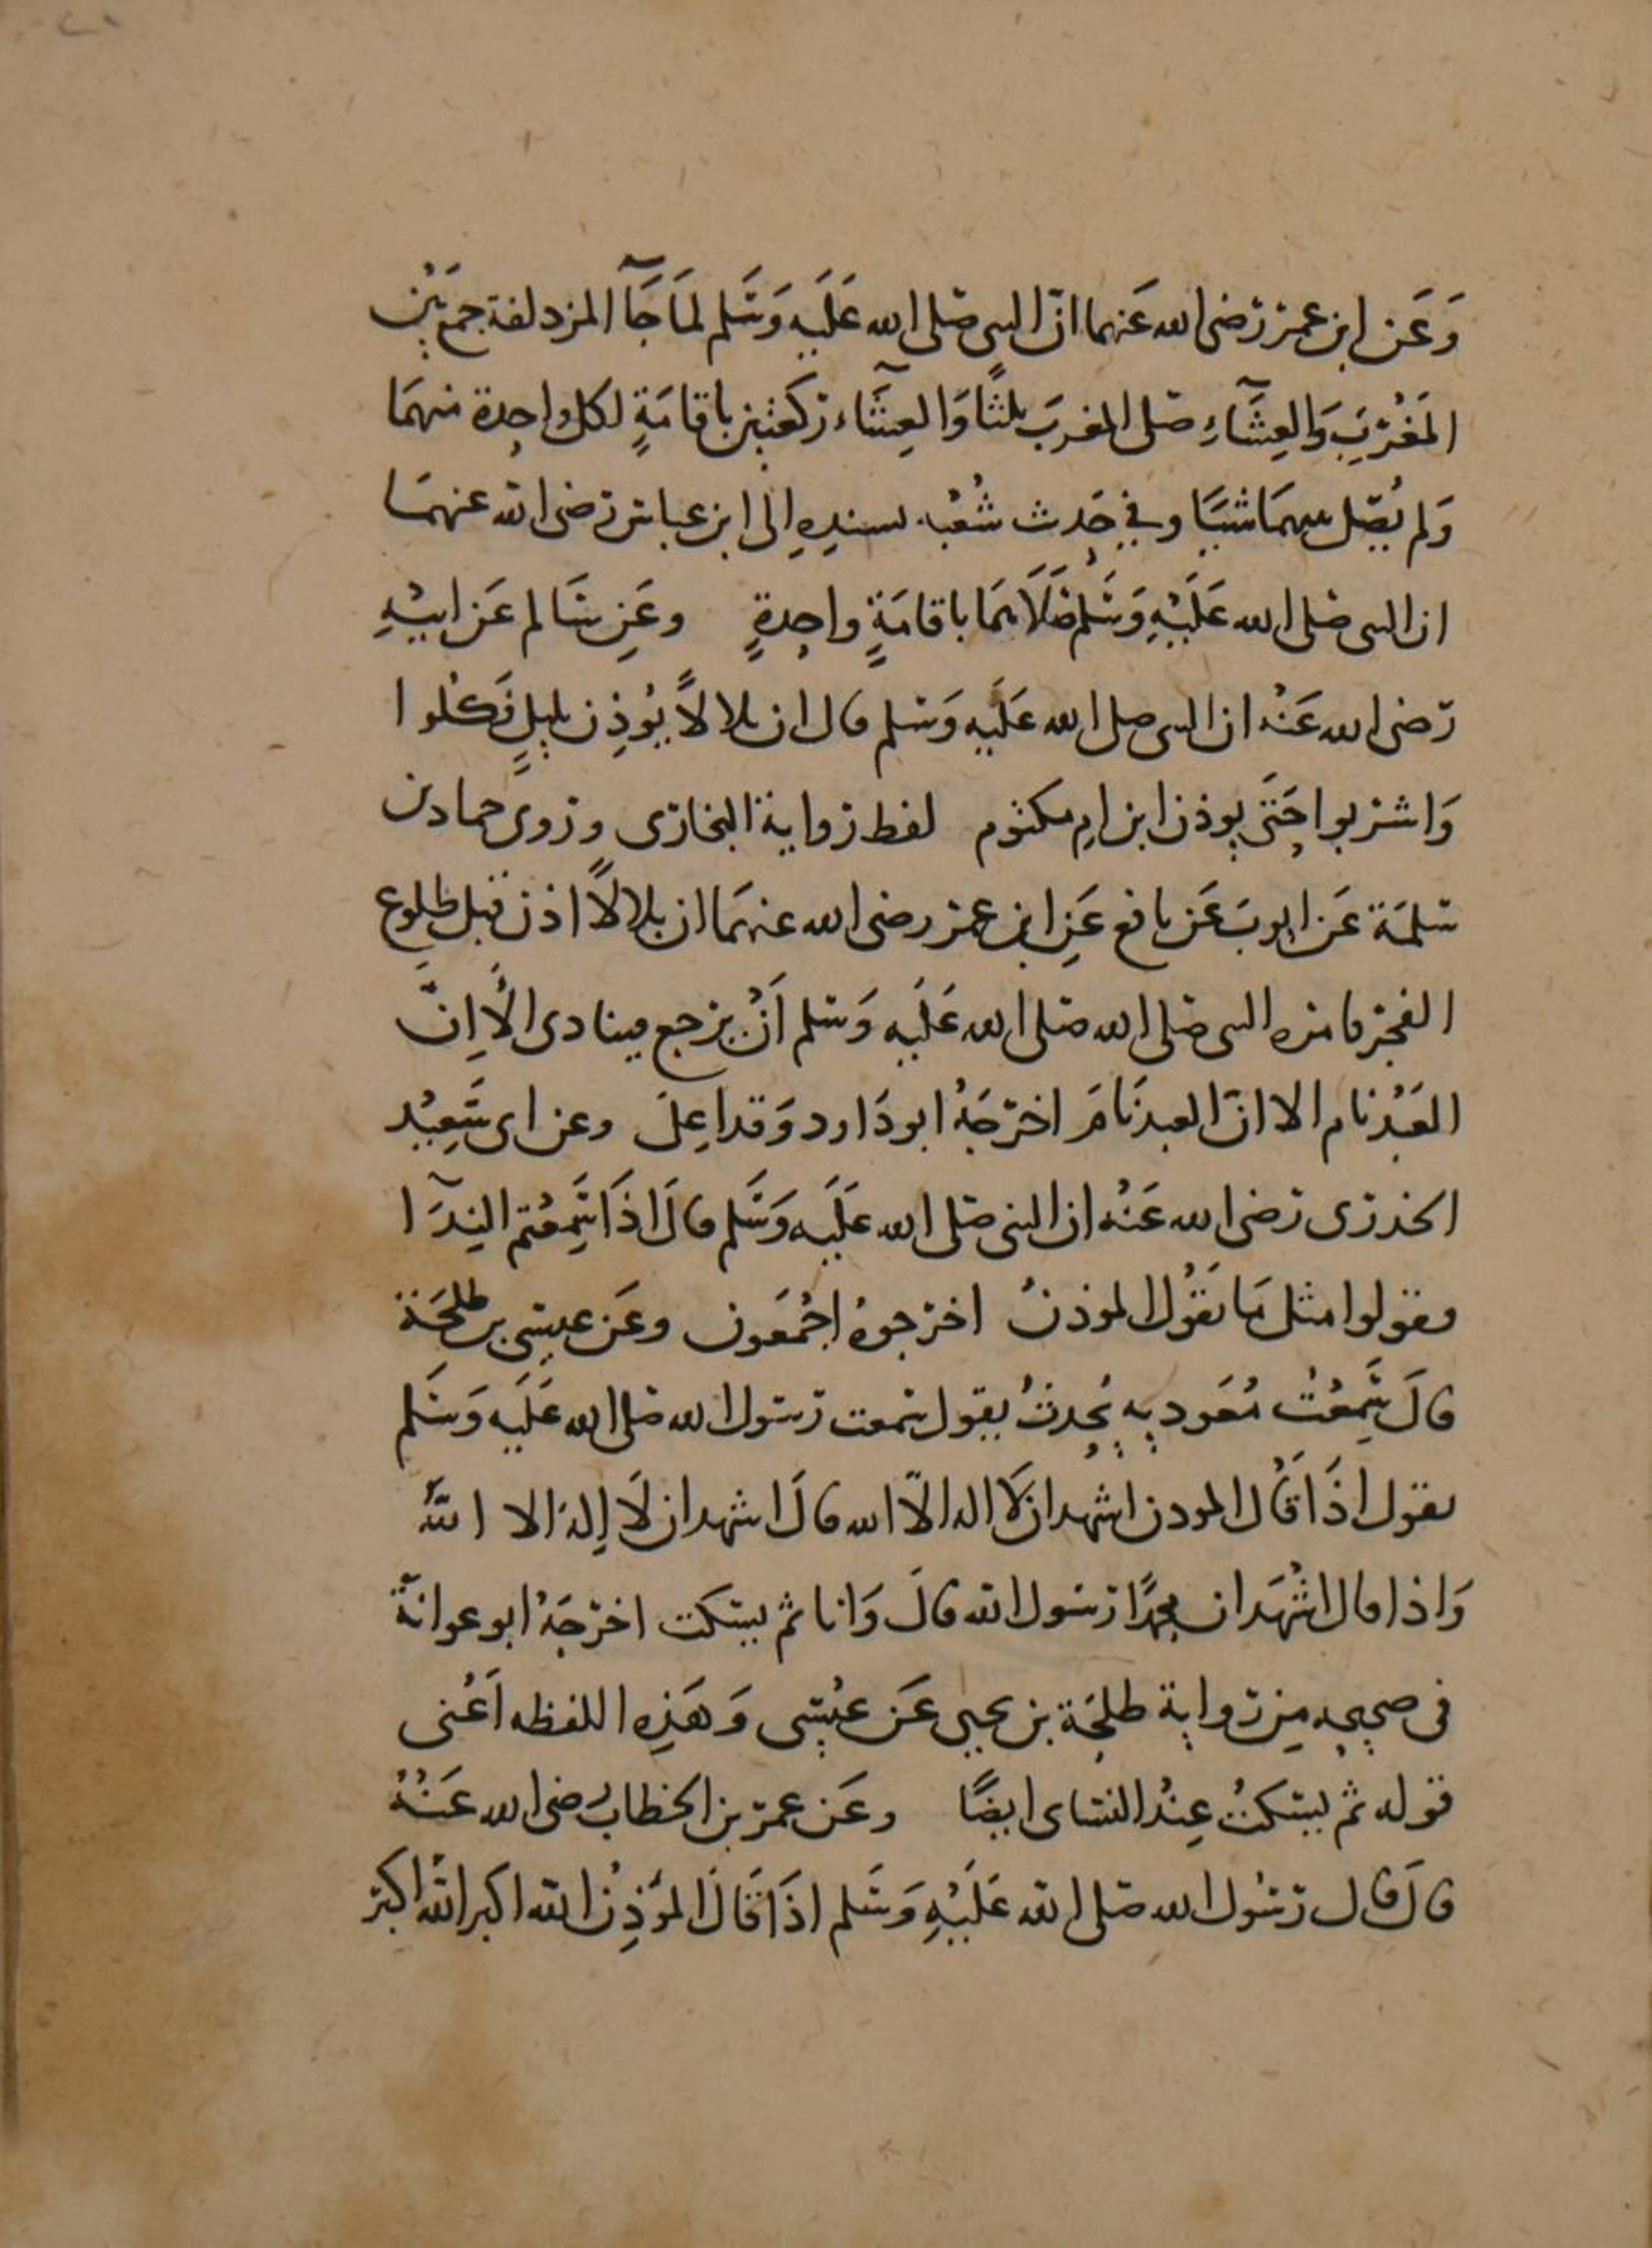 وَعَن ابن عمر رضى الله عَنهما انّ النبى صَلى الله عَلَيه وَسَلم لمَا جَآ المزدلفة جمعَ بَيْن
المَغْرِبَ وَالعِشَآءِ صَلى المغربَ ثلثًا وَالعِشَآء ركعتين باقامَةٍ لكل واحدة منهمَا
وَلم يُصَل بينهمَا شيَا وفي حَديث شُعْبه بسنده الى ابن عباس رضى الله عنهمَا
ان النبى صَلى الله عَلَيْهِ وَسَلم صَلَاهمَا باقامَةٍ واحِدةٍ وعَن سَالم عَن ابيْهِ
رَضى الله عَنْه ان النبى صلى الله عَلَيه وَسَلم قال ان بلالاً يُوذِن بليلٍ فَكلوا
وَاشربوا حَتى يوذن ابن امِ مكتوم لفظ رواية البخارى وروى حماد بن
سَلمَة عَن ايوبَ عَن نافع عَن ابن عمر رضى الله عنهمَا ان بلالاً اذن قبل طلوع
الفجر فامره النبى صَلى الله صَلى الله عَلَيه وَسَلم أَنْ يرجع فينادى الأَ اِنَّ
العَبْد نام الا انّ العبد نَامَ اخرَجَهُ ابو دَاود وَقد اعِلَ وعن ابى سَعِيْد
الخدرى رَضى الله عَنْه ان النبى صَلى الله عَلَيه وَسَلم قالَ اذَا سَمِعْتم النِدَآ
فقولوا مثل مَا يَقُول الموذنُ اخرجوهُ اجْمَعون وعَن عيسَى بن طلحَة
قالَ سَمِعْتُ مُعَويه يحدثُ يقول سَمعت رَسَول الله صَلى الله عَلَيه وَسَلم
يقول اذَا قَال الموذن اشهد ان لَا اله الاّ الله قالَ اشهد ان لَا إِلهَ الا الله
وَاذا قال اشْهَد ان محمدًا رَسَول الله قالَ وَانا ثم يسكت اخرَجَهُ ابو عوانَة
فى صحيحه مِن رواية طلحَة بن يحيى عَن عيْسَى وَهَذِه اللفظه اَعْنى
قوله ثم يسكتُ عِنْد النسَاى ايضًا وعَن عمر بن الخطاب رضى الله عَنْهُ
قالَ قال رَسُول الله صَلى الله عَلَيْهِ وَسَلم اذَا قَالَ المؤذِن الله اكبر الله اكبر